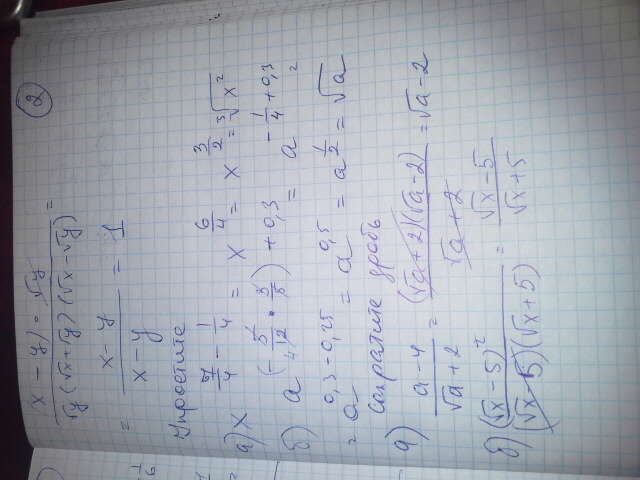 x - y) · √y / √y (√x + √y) (√x - √y) = ②
= x - y / x - y = 1
Упростите
а) x^(7/4 - 1/4) = x^(6/4) = x^(3/2) = ³√x²
б) a^((-5/12 · 3/5) + 0,3) = a^(-1/4 + 0,3) =
= a^(0,3 - 0,25) = a^(0,5) = a^(1/2) = √a
Сократите дробь
а) a - 4 / √a + 2 = (√a + 2)(√a - 2) / √a + 2 = √a - 2
б) (√x - 5)² / (√x - 5)(√x + 5) = √x - 5 / √x + 5